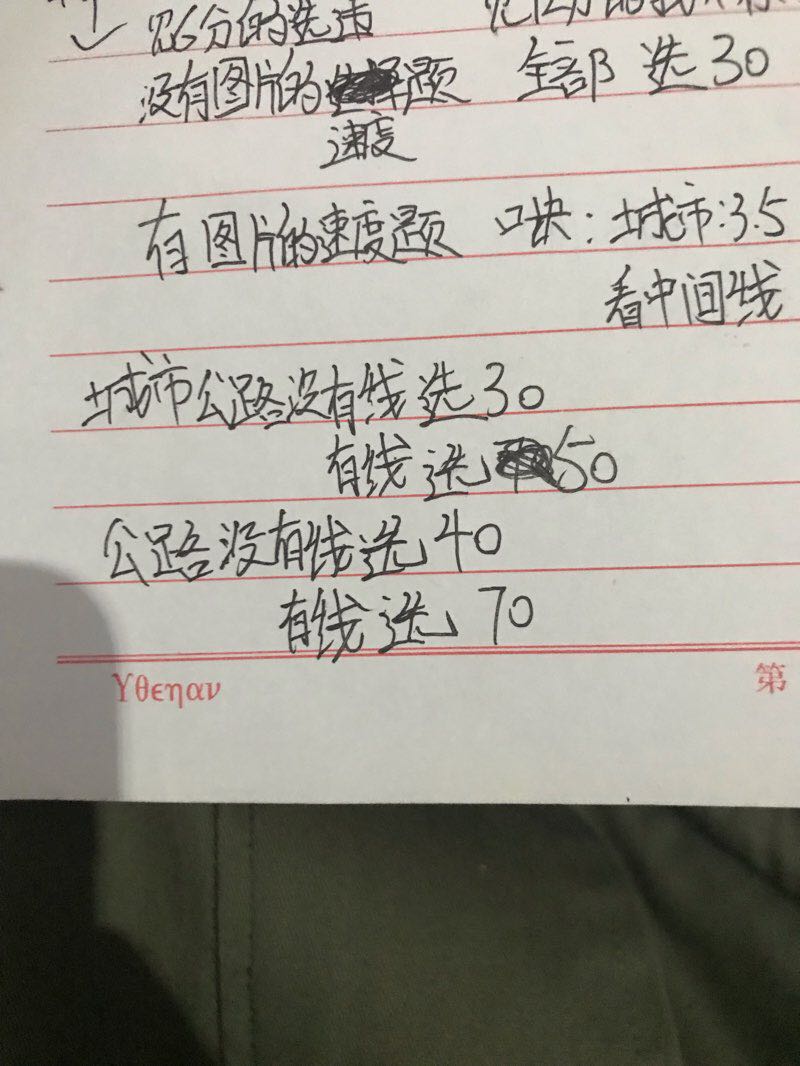 6分的选
没有图片的题 全部选30
速度
有图片的速度题 口诀:城市:3.5
看中间线
城市公路没有线选30
有线选50
公路没有线选40
有线选70
Yθεηαν 第